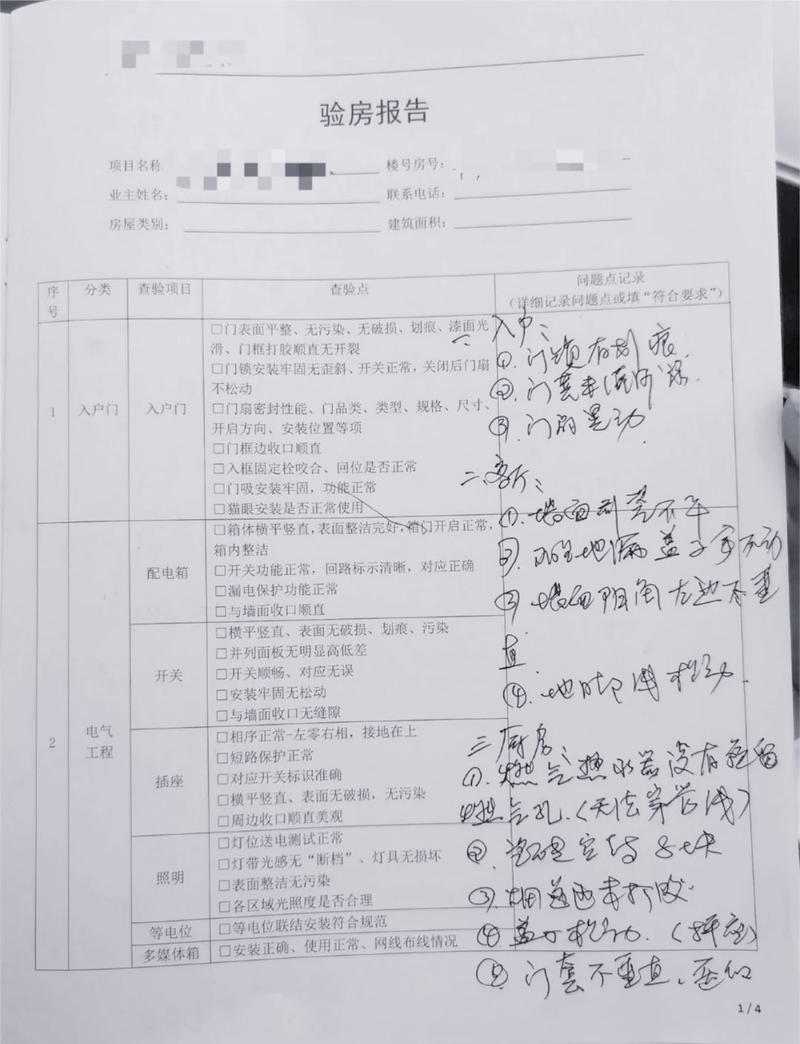 验房报告
项目名称
楼号房号:
业主姓名:
联系电话:
房屋类别:
建筑面积:
序号 分类 查验项目 查验点 问题点记录
(详细记录问题点或填“符合要求”)
1 入户门 入户门
□门表面平整、无污染、无破损、划痕、漆面光
滑、门框打胶顺直无开裂
□门锁安装牢固无歪斜、开关正常,关闭后门扇
不松动
□门扇密封性能、门品类、类型、规格、尺寸、
开启方向、安装位置等项
□门框边收口顺直
□入框固定栓咬合、回位是否正常
□门吸安装牢固,功能正常
□猫眼安装是否正常使用
2 电气工程
配电箱
□箱体横平竖直,表面整洁完好,箱门开启正常,
箱内整洁
□开关功能正常,回路标示清晰,对应正确
□漏电保护功能正常
□与墙面收口顺直
开关
□横平竖直、表面无破损、划痕、污染
□并列面板无明显高低差
□开关顺畅、对应无误
□安装牢固无松动
□与墙面收口无缝隙
插座
□相序正常-左零右相,接地在上
□短路保护正常
□对应开关标识准确
□横平竖直、表面无破损,无污染
□周边收口顺直美观
照明
□灯位送电测试正常
□灯带光感无“断档”、灯具无损坏
□表面整洁无污染
□各区域光照度是否合理
等电位 □等电位联结安装符合规范
多媒体箱 □安装正确、使用正常、网线布线情况
一、入户:
①. 门锁有划痕
②. 门套未清
③. 门扇晃动
二、客厅:
①. 墙面不平
②. 地漏盖子拿不动
③ 墙面阴角左边不垂
直
④. 地 松动.
三 厨房:
①. 燃气热水器没有预留
燃气孔.(无法穿管线)
② 瓷砖空鼓8块
③. 烟道 未打胶.
④ 盖子松动.(插座)
⑤ 门套不垂直、
1 / 4